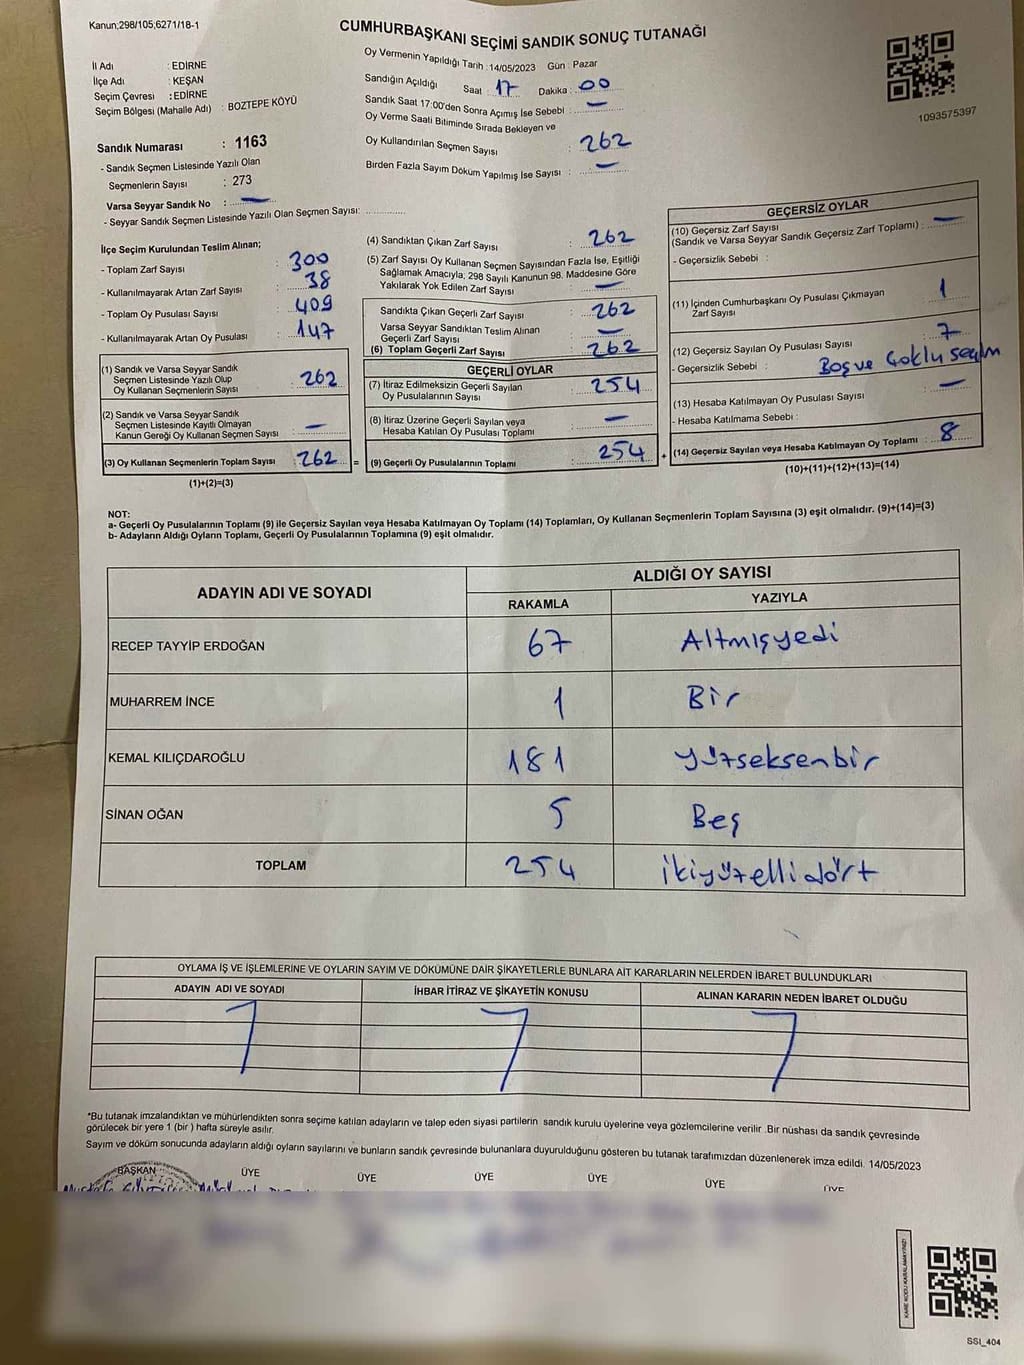 Kanun;298/105;6271/18-1
CUMHURBAŞKANI SEÇİMİ SANDIK SONUÇ TUTANAĞI
İl Adı : EDİRNE
İlçe Adı : KEŞAN
Seçim Çevresi : EDİRNE
Seçim Bölgesi (Mahalle Adı) : BOZTEPE KÖYÜ
Sandık Numarası : 1163
- Sandık Seçmen Listesinde Yazılı Olan
Seçmenlerin Sayısı : 273
Varsa Seyyar Sandık No : —
- Seyyar Sandık Seçmen Listesinde Yazılı Olan Seçmen Sayısı: ............
Oy Vermenin Yapıldığı Tarih :14/05/2023 Gün : Pazar
Sandığın Açıldığı Saat : 17 Dakika : 00
Sandık Saat 17:00'den Sonra Açımış İse Sebebi : —
Oy Verme Saati Bitiminde Sırada Bekleyen ve
Oy Kullandırılan Seçmen Sayısı : 262
Birden Fazla Sayım Döküm Yapılmış İse Sayısı : —
1093575397
İlçe Seçim Kurulundan Teslim Alınan;
- Toplam Zarf Sayısı : 300
- Kullanılmayarak Artan Zarf Sayısı : 38
- Toplam Oy Pusulası Sayısı : 409
- Kullanılmayarak Artan Oy Pusulası : 147
(1) Sandık ve Varsa Seyyar Sandık
Seçmen Listesinde Yazılı Olup
Oy Kullanan Seçmenlerin Sayısı : 262
(2) Sandık ve Varsa Seyyar Sandık
Seçmen Listesinde Kayıtlı Olmayan
Kanun Gereği Oy Kullanan Seçmen Sayısı : —
(3) Oy Kullanan Seçmenlerin Toplam Sayısı : 262 =
(1)+(2)=(3)
(4) Sandıktan Çıkan Zarf Sayısı : 262
(5) Zarf Sayısı Oy Kullanan Seçmen Sayısından Fazla İse, Eşitliği
Sağlamak Amacıyla, 298 Sayılı Kanunun 98. Maddesine Göre
Yakılarak Yok Edilen Zarf Sayısı : —
Sandıkta Çıkan Geçerli Zarf Sayısı : 262
Varsa Seyyar Sandıktan Teslim Alınan
Geçerli Zarf Sayısı : —
(6) Toplam Geçerli Zarf Sayısı : 262
GEÇERLİ OYLAR
(7) İtiraz Edilmeksizin Geçerli Sayılan
Oy Pusulalarının Sayısı : 254
(8) İtiraz Üzerine Geçerli Sayılan veya
Hesaba Katılan Oy Pusulası Toplamı : —
(9) Geçerli Oy Pusulalarının Toplamı : 254 +
GEÇERSİZ OYLAR
(10) Geçersiz Zarf Sayısı
(Sandık ve Varsa Seyyar Sandık Geçersiz Zarf Toplamı) : —
- Geçersizlik Sebebi :
(11) İçinden Cumhurbaşkanı Oy Pusulası Çıkmayan
Zarf Sayısı : 1
(12) Geçersiz Sayılan Oy Pusulası Sayısı : 7
- Geçersizlik Sebebi : Boş ve Çoklu seçim
(13) Hesaba Katılmayan Oy Pusulası Sayısı : —
- Hesaba Katılmama Sebebi :
(14) Geçersiz Sayılan veya Hesaba Katılmayan Oy Toplamı : 8
(10)+(11)+(12)+(13)=(14)
NOT:
a- Geçerli Oy Pusulalarının Toplamı (9) ile Geçersiz Sayılan veya Hesaba Katılmayan Oy Toplamı (14) Toplamları, Oy Kullanan Seçmenlerin Toplam Sayısına (3) eşit olmalıdır. (9)+(14)=(3)
b- Adayların Aldığı Oyların Toplamı, Geçerli Oy Pusulalarının Toplamına (9) eşit olmalıdır.
ADAYIN ADI VE SOYADI ALDIĞI OY SAYISI
RAKAMLA YAZIYLA
RECEP TAYYİP ERDOĞAN 67 Altmışyedi
MUHARREM İNCE 1 Bir
KEMAL KILIÇDAROĞLU 181 yüzseksenbir
SİNAN OĞAN 5 Beş
TOPLAM 254 ikiyüzellidört
OYLAMA İŞ VE İŞLEMLERİNE VE OYLARIN SAYIM VE DÖKÜMÜNE DAİR ŞİKAYETLERLE BUNLARA AİT KARARLARIN NELERDEN İBARET BULUNDUKLARI
ADAYIN ADI VE SOYADI İHBAR İTİRAZ VE ŞİKAYETİN KONUSU ALINAN KARARIN NEDEN İBARET OLDUĞU
*Bu tutanak imzalandıktan ve mühürlendikten sonra seçime katılan adayların ve talep eden siyasi partilerin sandık kurulu üyelerine veya gözlemcilerine verilir .Bir nüshası da sandık çevresinde
görülecek bir yere 1 (bir ) hafta süreyle asılır.
Sayım ve döküm sonucunda adayların aldığı oyların sayılarını ve bunların sandık çevresinde bulunanlara duyurulduğunu gösteren bu tutanak tarafımızdan düzenlenerek imza edildi. 14/05/2023
BAŞKAN ÜYE ÜYE ÜYE ÜYE ÜYE ÜYE
KARE KODU KARALAMAYINIZ!
SSI_404